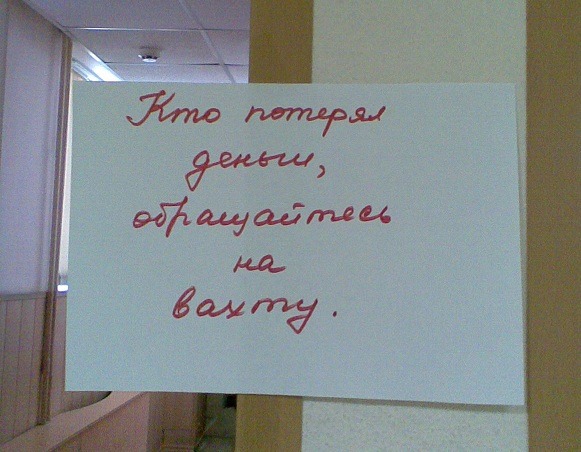 Кто потерял
деньги,
обращайтесь
на
вахту.